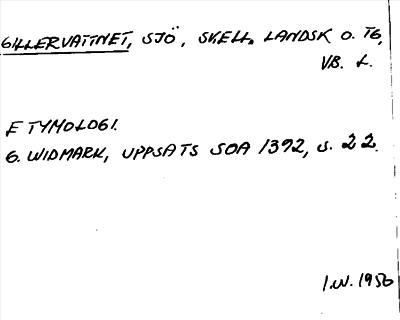 GILLERVATTNET, SJÖ, SKELL. LANDSK O. TG,
VB. L.
ETYMOLOGI.
G. WIDMARK, UPPSATS SOA 1392, S. 22.
I.W. 1956